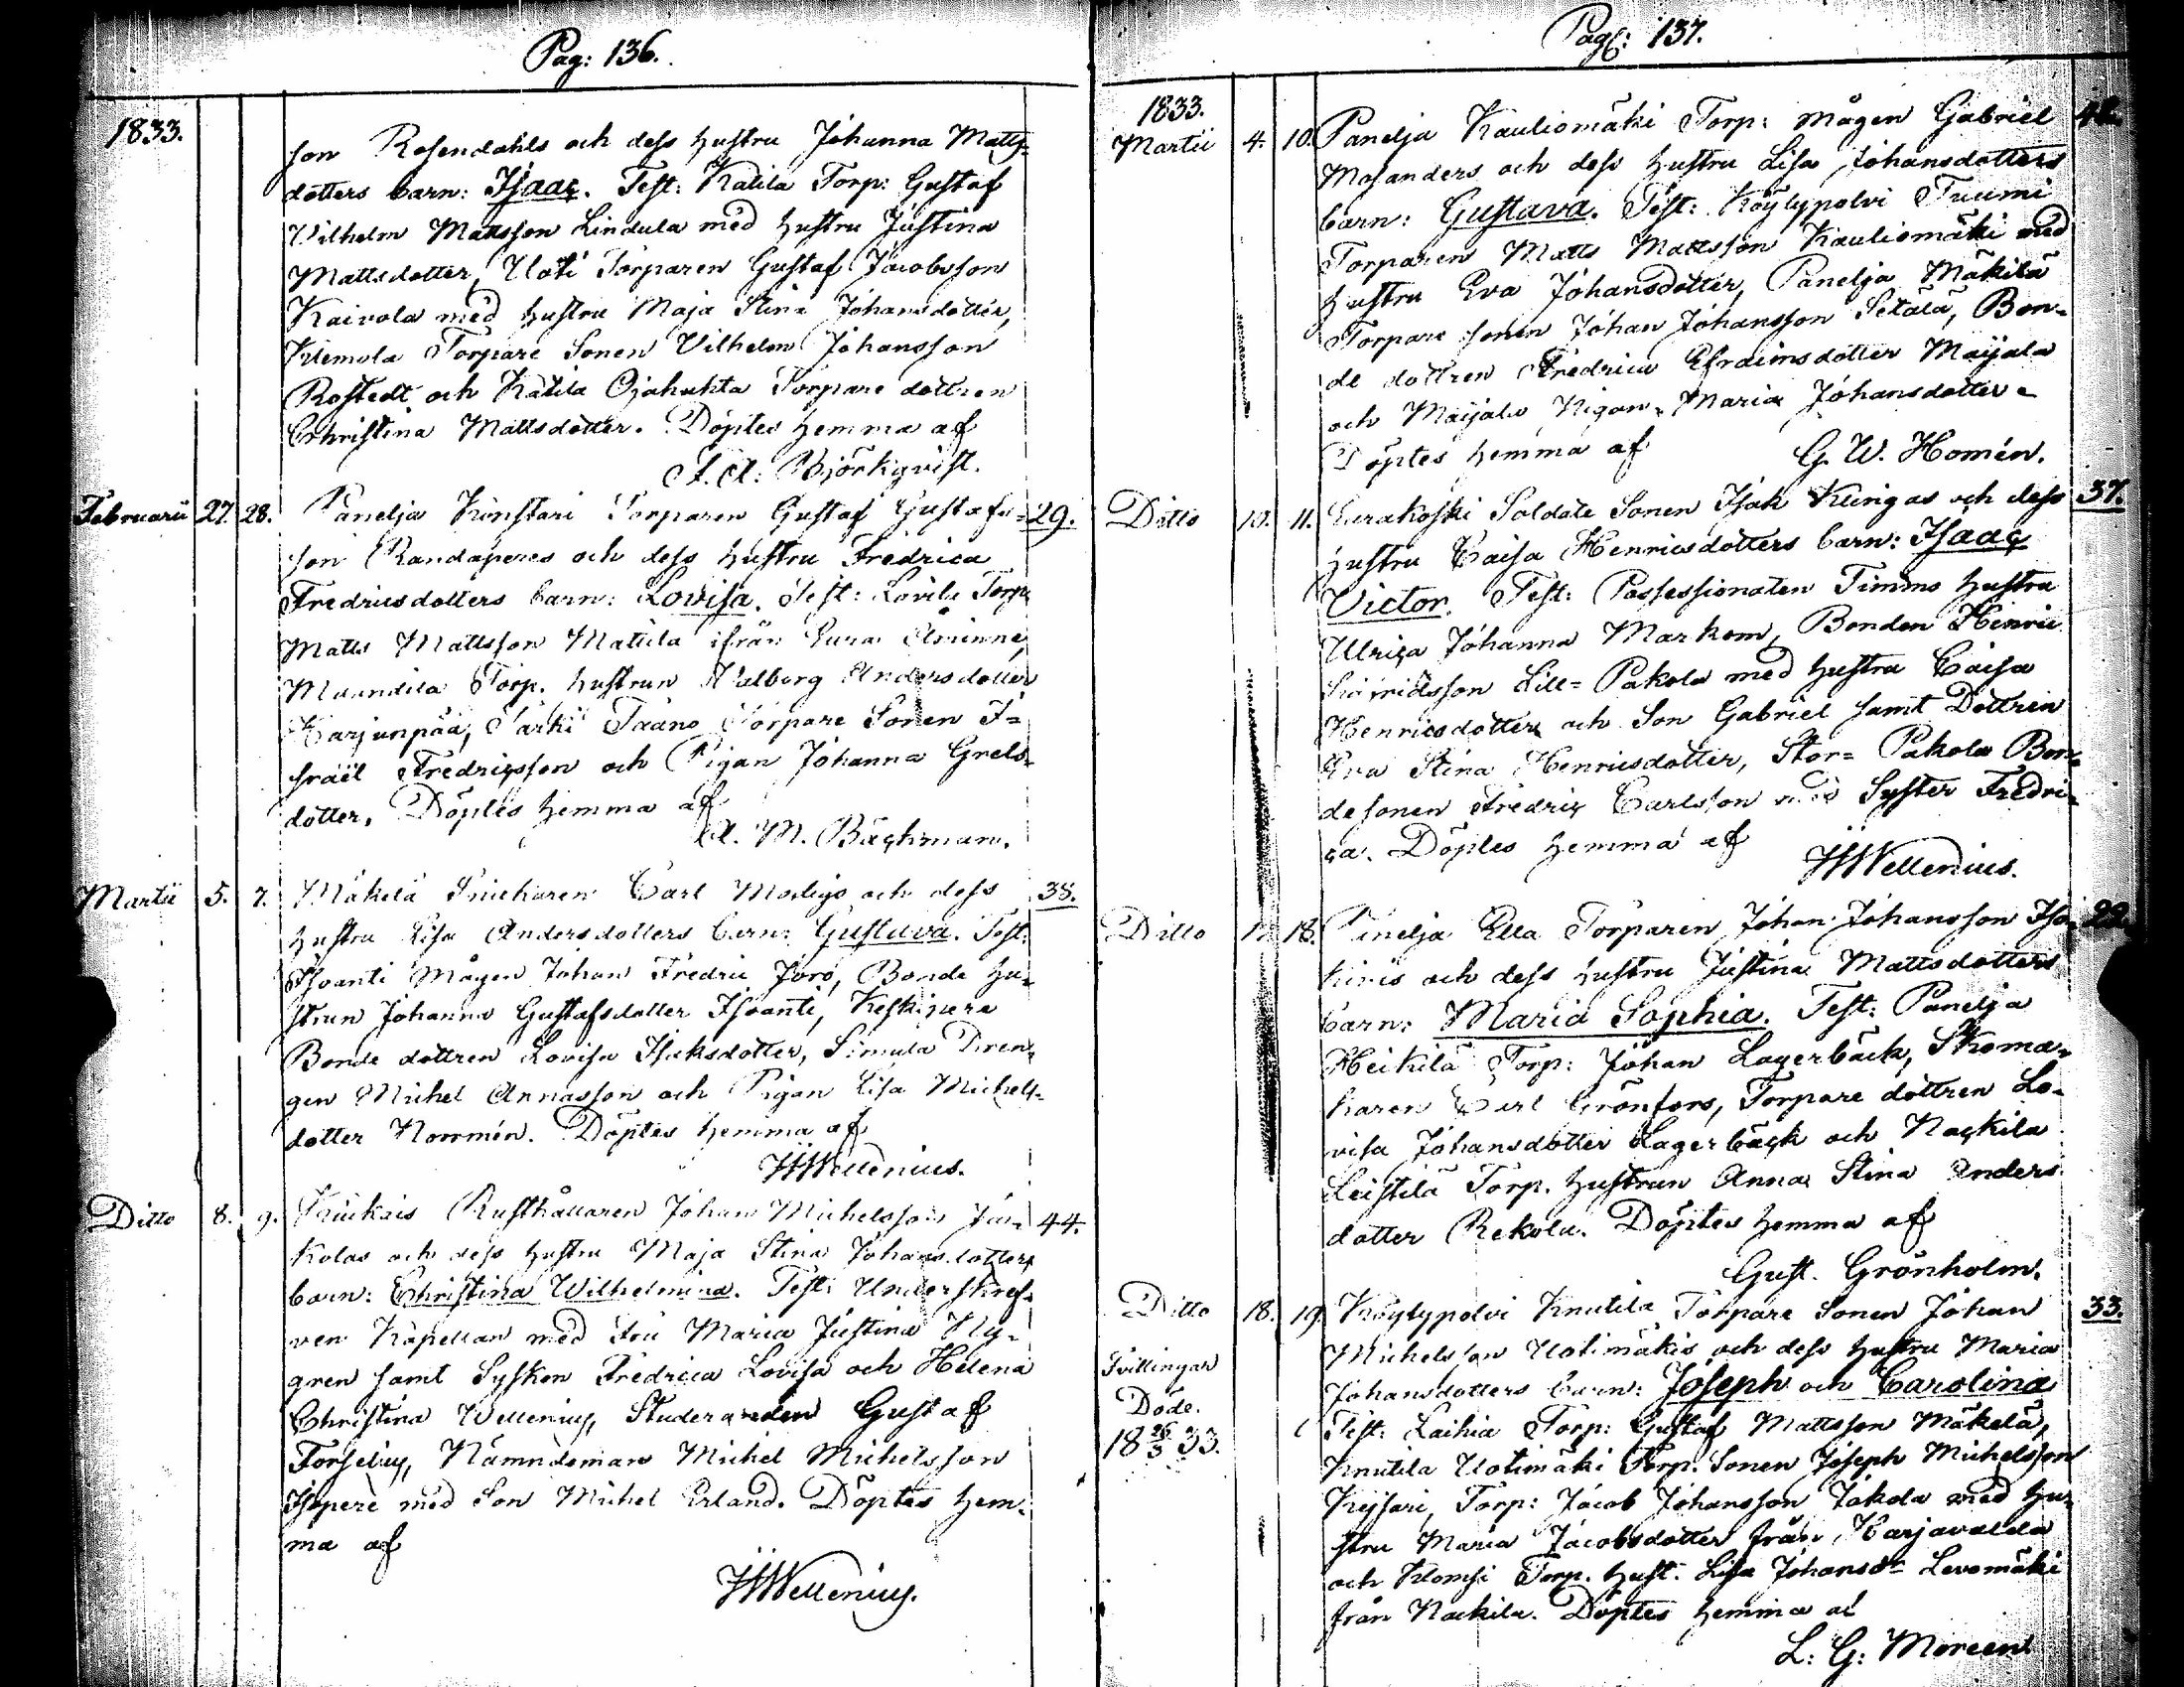 Pag: 136.
1833.
son Rosendahls och dess hustru Johanna Matts-
dotters barn: Isaac. Test: Katila Torp: Gustaf
Vilhelm Mattsson Lindula med hustru Justina
Mattsdotter, Uoti Torparen Gustaf Jacobsson
Kaivola med hustru Maja Stina Johansdotter,
Klemola Torpare Sonen Vilhelm Johansson
Rostedt och Katila Ojahuhta Torpare dottren
Christina Mattsdotter. Döptes hemma af
A. A: Björkqvist.
Februarii 27. 28. Panelja Kinstari Torparen Gustaf Gustafs- 29.
son Randaperes och dess hustru Fredrica
Fredricsdotters barn: Lovisa. Test: Lavila Torp.
Matts Mattsson Mattila ifrån Eura Åminne,
Maundila Torp. hustrun Valborg Andersdotter
Karjunpää, Särki Tääno Torpare Sonen I=
sraël Fredricsson och Pigan Johanna Grels-
dotter. Döptes hemma af
A. M. Bäckman.
Martii 5. 7. Mäkelä Snickaren Carl Modigs och dess 38.
hustru Lisa Andersdotters barn: Gustava. Test:
Isoanti Mågen Johan Fredric Joro, Bonde hu-
strun Johanna Gustafsdotter Isoanti, Keskipere
Bonde dottren Lovisa Isaksdotter, Simula Dren-
gen Michel Annasson och Pigan Lisa Michels-
dotter Norrmén. Döptes hemma af
HWellenius.
Ditto 8. 9. Kiukais Rusthållaren Johan Michelsson 44.
kolas och dess hustru Maja Stina Johansdotters
barn: Christina Wilhelmina. Test: Underskref-
ven Kapellan med fru Maria Justina Ny-
gren samt Syskon Fredrica Lovisa och Helena
Christina Wellenius, Studeranden Gustaf
Forselius, Nämndeman Michel Michelsson
Isopere med Son Michel Erland. Döptes hem-
ma af
HWellenius.
Pag: 137.
1833.
Martii 4. 10. Panelja Kauliomäki Torp: mågen Gabriel
Mosanders och dess hustru Lisa Johansdotters
barn: Gustava. Test: Köylypolvi Tuumi
Torparen Matts Mattsson Kauliomäki med
hustru Eva Johansdotter, Panelja Mäkilä
Torpare sonen Johan Johansson Setälä, Bon-
de dottren Fredrica Efraimsdotter Maijala
och Maijala Pigan Maria Johansdotter.
Döptes hemma af G. W. Homén.
Ditto 10. 11. Eurakoski Soldate Sonen Isak Klingas och dess 37.
hustru Caisa Henricsdotters barn: Isaac
Victor. Test: Possessionaten Timms hustru
Ulrica Johanna Markom, Bonden Henric
Sigfridsson Lill= Pakola med hustru Caisa
Henricsdotter och Son Gabriel samt Dottren
Eva Stina Henricsdotter, Stor= Pakola Bon-
desonen Fredric Carlsson med Syster Fredri-
ca. Döptes hemma af
HWellenius.
Ditto 18. Panelja Ella Torparen Johan Johansson Iso- 22.
kinis och dess hustru Justina Mattsdotters
barn: Maria Sophia. Test: Panelja
Heikilä Torp: Johan Lagerbäck, Skoma-
karen Carl Grönfors, Torpare dottren Lo-
visa Johansdotter Lagerbäck och Nackila
Leistilä Torp. hustrun Anna Stina Anders
dotter Rekola. Döptes hemma af
Gust. Grönholm.
Ditto 18. 19. Köylypolvi Knutila Torpare Sonen Johan 33.
Michelsson Uotimäkis och dess hustru Maria
Tvillingar
Johansdotters barn: Joseph och Carolina
Döde.
Test: Laihia Torp: Gustaf Mattsson Mäkelä,
18 26/3 33.
Knutila Uotimäki Torp. Sonen Joseph Michelsson
Keysari, Torp: Jacob Johansson Jakola med hu-
stru Maria Jacobsdotter från Harjavalda
och Klomsi Torp. hust. Lisa Johansdr Levomäki
från Nackila. Döptes hemma af
L: G: Moreen